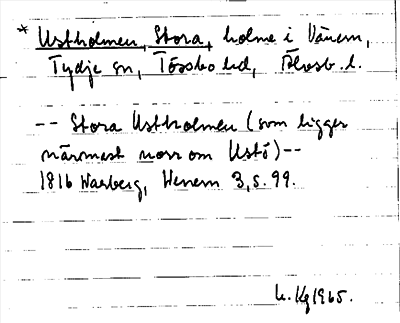 * Ustholmen, Stora, holme i Vänern,
Tydje sn, Tössbo hd, Älvsb. l.
-- Stora Ustholmen (som ligger
närmast norr om Ustö)--
1816 Warberg, Wenern 3, s. 99.
1965.